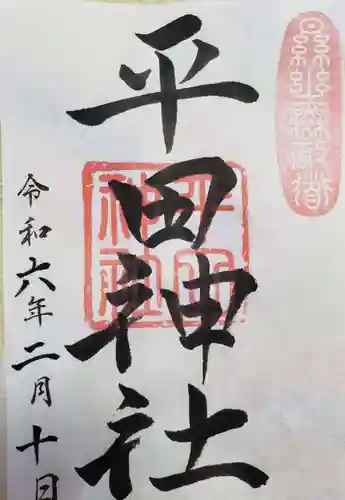 平田神社
令和六年二月十日
平田
神社